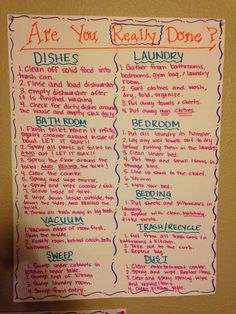 Are You Really Done?
DISHES
1. Clean off solid food into
trash can.
2. rinse and load dishwasher
3. empty dishwasher after
it is finished washing
4. Check for dirty dishes around
the house and empty sick dirty
LAUNDRY
1. Gather from bathrooms,
bedrooms, gym bag, laundry
room.
2. Sort clothes and wash,
dry, fold, organize.
3. Put away towels & sheets.
4. Put away clothes.
BATHROOM
1. Flush toilet when it
cleaner around inside of
bowl. LET IT
2. Spray all parts of toilet in
AND
3. Spray the floor around the
toilet AND BEHIND the toilet!
4. Clear the counter.
5. Spray and wipe mirror.
6. Spray and wipe counter / sink
7. Scrub inside of toilet.
8. Wipe down inside, outside, top,
down the sides, and behind the
toilet.
9. Throw all trash away in big trash.
BEDROOM
1. Put all laundry in hamper.
2.
before putting them in the laundry
3. Clean under bed.
4. Put toys and small items
5.
6. Vacuum
7. Make your bed.
BEDDING
1. Put sheets and pillowcases in
laundry.
2. Replace with clean, matching,
sheets.
VACUUM
1. Vacuum edges of room first,
then the inside.
2. Family room, behind couch,
TRASH/RECYCLE
1. Put all trash cans in
bathrooms & kitchen.
2. Take out to the curb.
3. Replace bag.
SWEEP
1. Sweep under cabinets in
kitchen / under table.
2. Sweep rest of kitchen
3. Sweep laundry room.
4. Sweep front entry.
DUST
1. Clear entertainment center.
2. Spray and wipe
3. Clear and spray, wipe
and replace items
4. Clear kitchen table